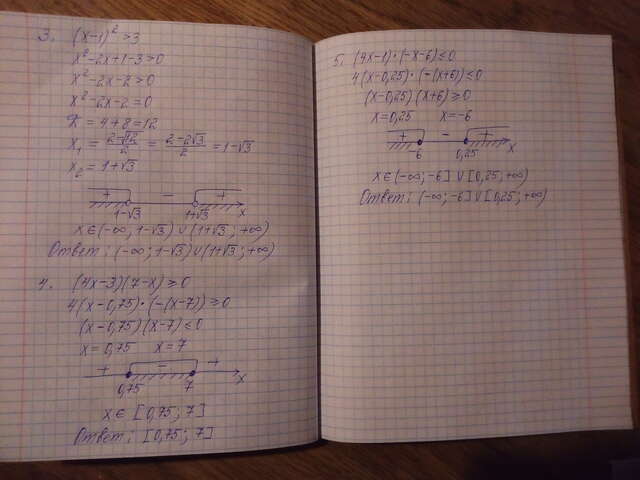 3. (x-1)² >3
x²-2x+1-3>0
x²-2x-2>0
x²-2x-2=0
D = 4+8=12
x₁ = (2-√12)/2 = (2-2√3)/2 = 1-√3
x₂ = 1+√3
+ - +
1-√3 1+√3 x
x∈(-∞; 1-√3) ∪ (1+√3; +∞)
Ответ: (-∞; 1-√3) ∪ (1+√3; +∞)
4. (4x-3)(7-x) ≥0
4(x-0,75)·(-(x-7)) ≥0
(x-0,75)(x-7) ≤0
x=0,75 x=7
+ - +
0,75 7 x
x∈ [0,75; 7]
Ответ: [0,75; 7]
5. (4x-1)·(-x-6) ≤0
4(x-0,25)·(-(x+6)) ≤0
(x-0,25)(x+6) ≥0
x=0,25 x=-6
+ - +
-6 0,25 x
x∈(-∞; -6] ∪ [0,25; +∞)
Ответ: (-∞; -6] ∪ [0,25; +∞)